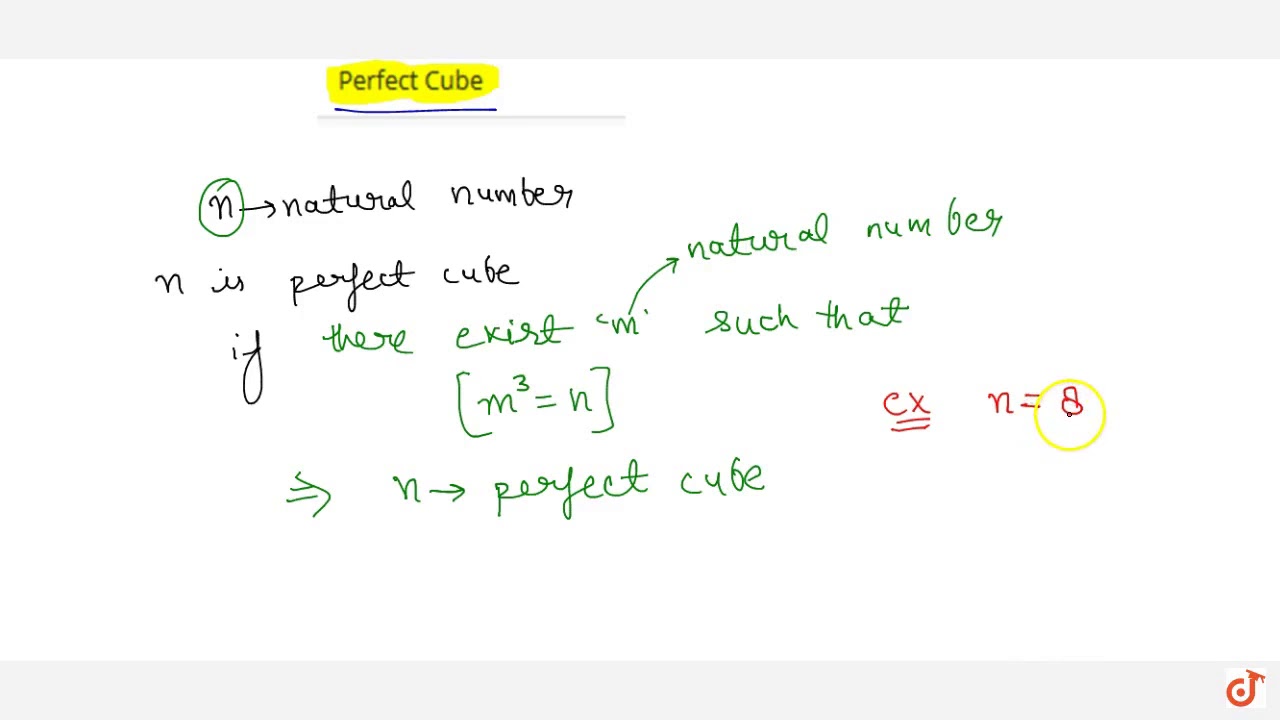 Perfect Cube
n → natural number
natural number
n is perfect cube
if there exist 'm' such that
[m³ = n]
ex n = 8
⇒ n → perfect cube